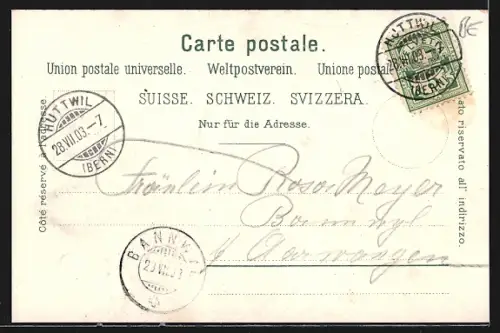 BE
Carte postale.
Union postale universelle. Weltpostverein. Unione postale
SUISSE. SCHWEIZ. SVIZZERA.
Nur für die Adresse.
Côté réservé à l'adresse
Lato riservato all' indirizzo.
HUTTWIL
28.VII.03.-7
(BERN)
HUTTWIL
28.VII.03.
(BERN)
HELVETIA
Fräulein Rosa Meyer
Bannwyl
b/ Aarwangen
BANNWIL
29.VII.03